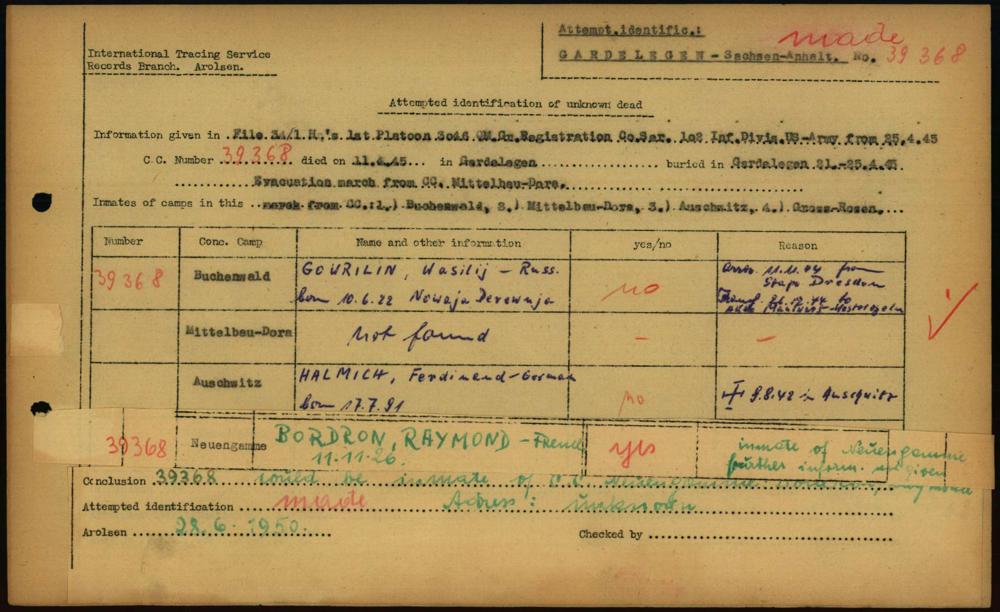 International Tracing Service
Records Branch. Arolsen.
Attempt.identific.: made
GARDELEGEN - Sachsen-Anhalt. No. 39 368
Attempted identification of unknown dead
Information given in .File 3A/1 Hq's 1st Platoon 3046 QM.Gr.Registration Co.Sar. 102 Inf.Divis.US-Army from 25.4.45
C.C. Number 39368 died on 11.4.45 ... in Gardelegen buried in Gardelegen 21.-25.4.45
Evacuation march from CC. Mittelbau-Dora.
Inmates of camps in this ..march from CC:1.) Buchenwald, 2.) Mittelbau-Dora, 3.) Auschwitz, 4.) Gross-Rosen....
Number Conc. Camp Name and other information yes/no Reason
39368 Buchenwald GOURILIN, Wasilij - Russ. no arriv. 11.11.44 from
born 10.6.22 Nowaja Derewnja Stapo Dresden
Mittelbau-Dora not found - -
Auschwitz HALMICH, Ferdinand - German no 9.8.42 in Auschwitz
born 17.7.91
39368 Neuengamme BORDRON, RAYMOND - French yes inmate of Neuengamme
11.11.26. further inform. not given
Conclusion 39368 could be inmate of C.C. Neuengamme
Attempted identification made Adress: unknown
Arolsen 28.6.1950. Checked by